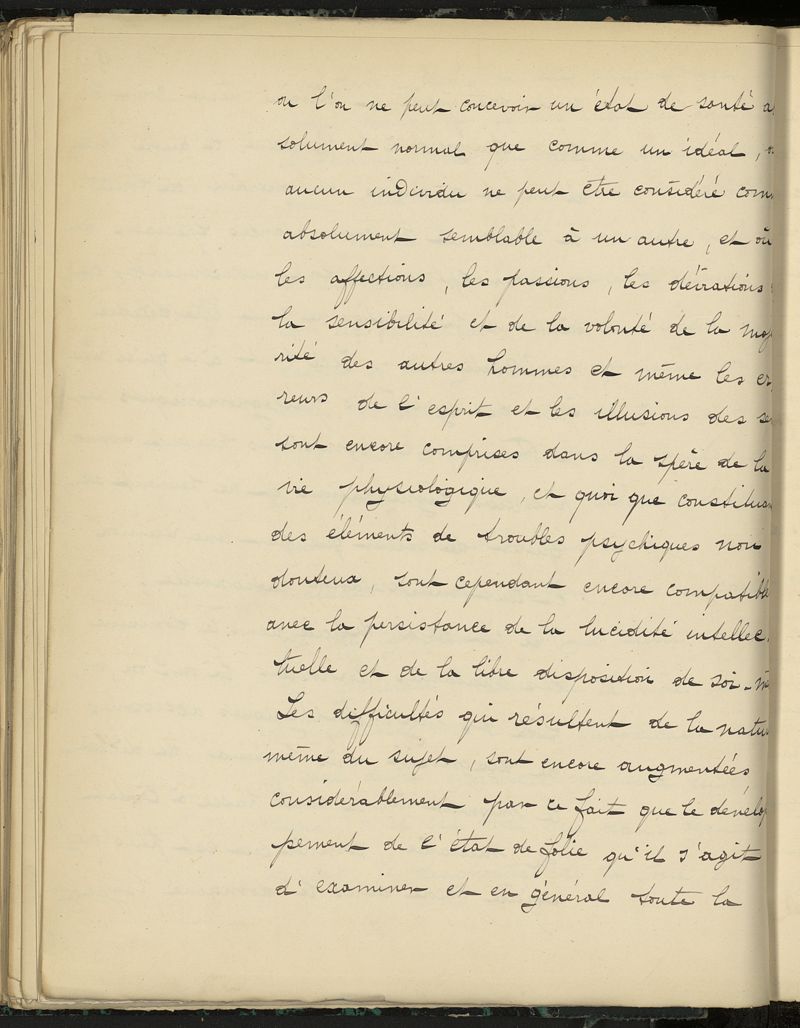 ou l'on ne peut concevoir un état de santé a
solument normal que comme un idéal,
aucun individu ne peut etre considéré com
absolument semblable à un autre, et où
les affections, les passions, les déviations
la sensibilité et de la volonté de la maj
rité des autres hommes et même les er
reurs de l'esprit et les illusions des se
sont encore comprises dans la spère de la
vie physiologique, et quoi que constitua
des éléments de troubles psychiques non
douteux, sont cependant encore compatible
avec la persistance de la lucidité intellec
tuelle et de la libre disposition de soi-m
Les difficultés qui résultent de la natu
même du sujet, sont encore augmentées
considérablement par ce fait que le dévelop
pement de l'état de folie qu'il s'agit
d'examiner et en général toute la